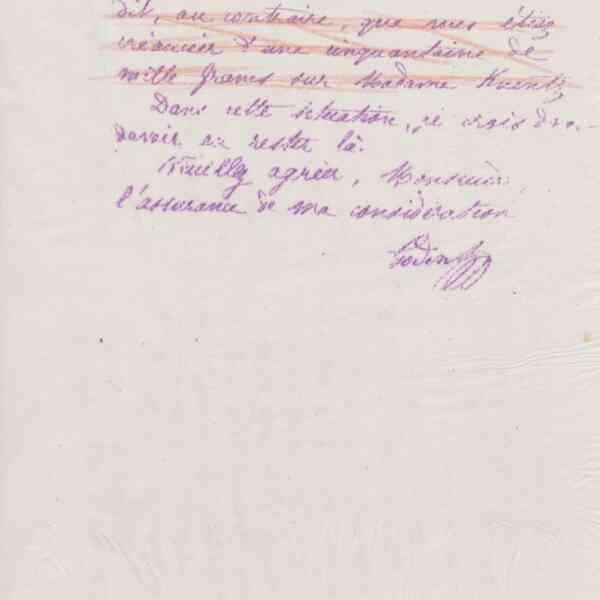 dit, au contraire, que vous étiez
créancier d'une cinquantaine de
mille francs sur Madame Kuentz
Dans cette situation, je crois donc
devoir en rester là.
Veuillez agréer, Monsieur,
l'assurance de ma considération
Godin